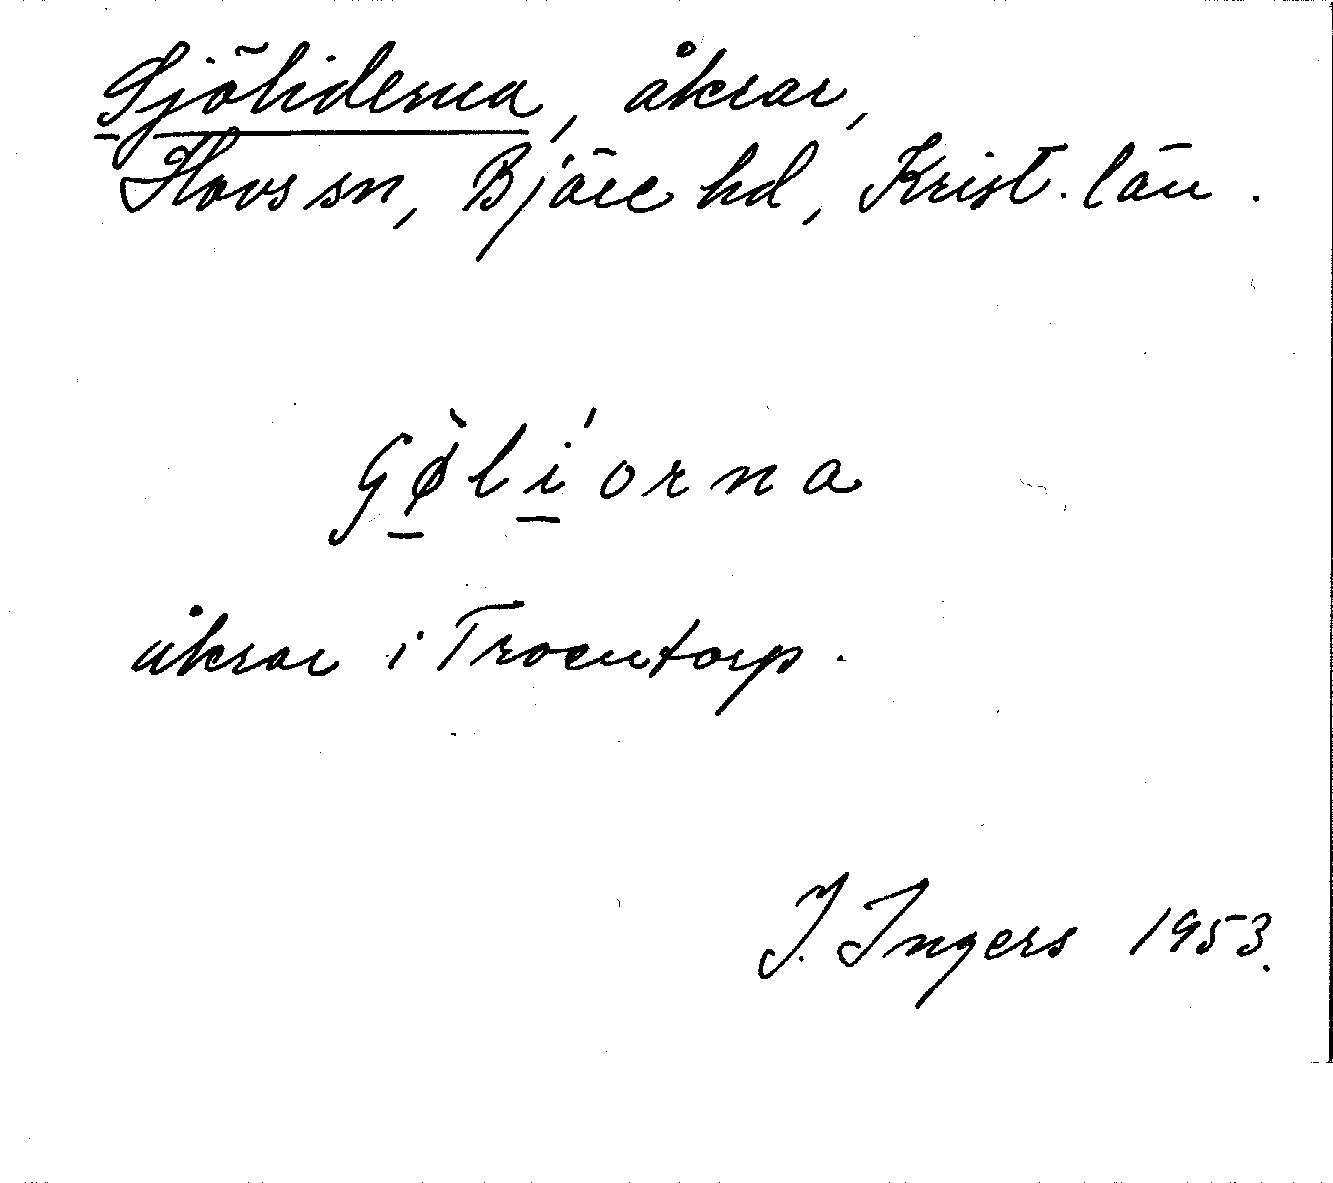 Sjöliderna, åkrar,
Hovs sn, Bjäre hd, Krist. län.
Gø̀líorna
åkrar i Troentorp.
I. Ingers 1953.